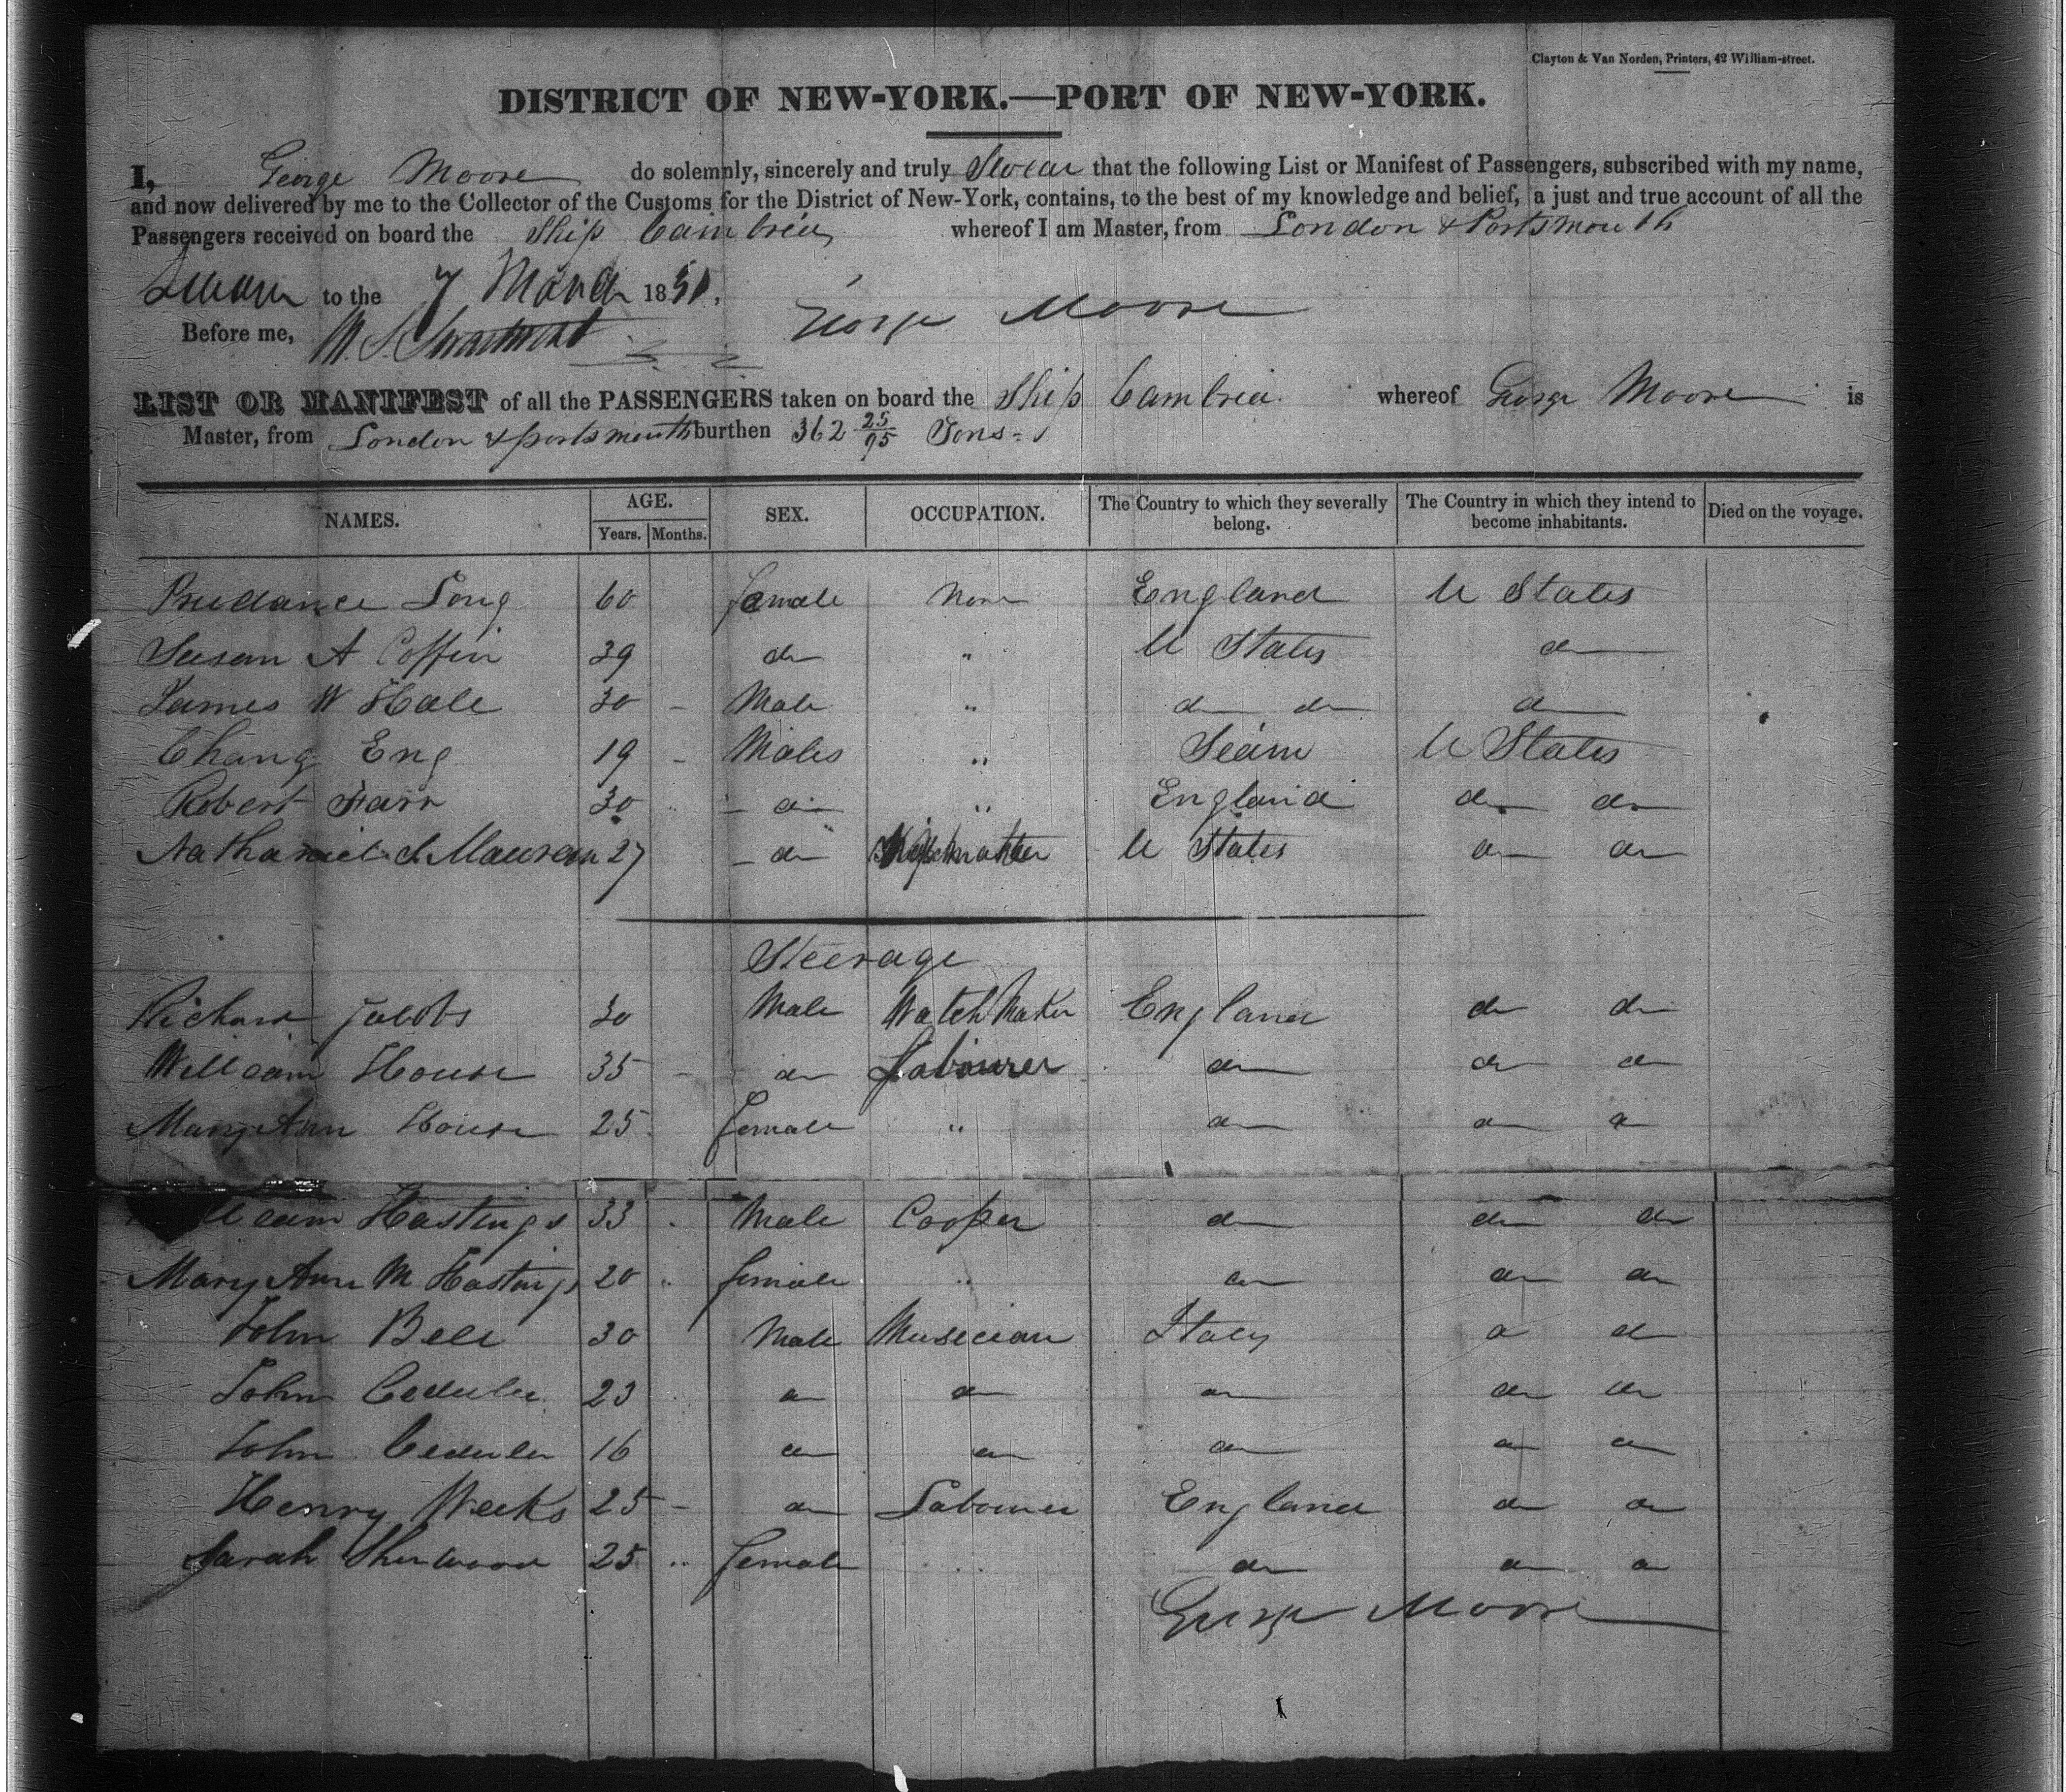 Clayton & Van Norden, Printers, 42 William-street.
DISTRICT OF NEW-YORK.—PORT OF NEW-YORK.
I, George Moore do solemnly, sincerely and truly Swear that the following List or Manifest of Passengers, subscribed with my name,
and now delivered by me to the Collector of the Customs for the District of New-York, contains, to the best of my knowledge and belief, a just and true account of all the
Passengers received on board the Ship Cambria, whereof I am Master, from London & Portsmouth
Sworn to the 7 March 1831,
George Moore
Before me,
LIST OR MANIFEST of all the PASSENGERS taken on board the Ship Cambria. whereof George Moore is
Master, from London & portsmouth burthen 362 25/95 Tons
NAMES. AGE. Years. Months. SEX. OCCUPATION. The Country to which they severally belong. The Country in which they intend to become inhabitants. Died on the voyage.
Prudance Long 60 female None England U States
Susan A Coffin 39 do " U States do
James W Hale 30 - Male " do do do
Chang Eng 19 - Males " Seam U States
Robert Farr 30 " - do - " England do do
Nathaniel 27 - do U States do do
Steerage
Richard Jacobs 30 Male Watch Maker England do do
William House 35 - do Labourer do do do
Mary Ann House 25 female " do do do
William Hastings 33 Male Cooper do do do
Mary Ann M Hastings 20 " female " do do do
John Bell 30 Male Musician Italy do do
John 23 do do do do do
John 16 do do do do do
Henry Weeks 25 - do Labourer England do do
Sarah Sherwood 25 " female " do do do
George Moore